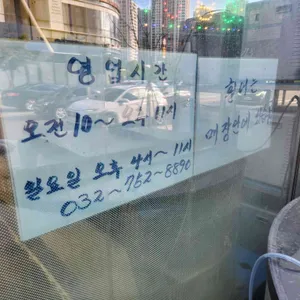 영업시간
오전 10~ 오후 11시
일요일 오후 4시~11시
032~752~8890
매장안에